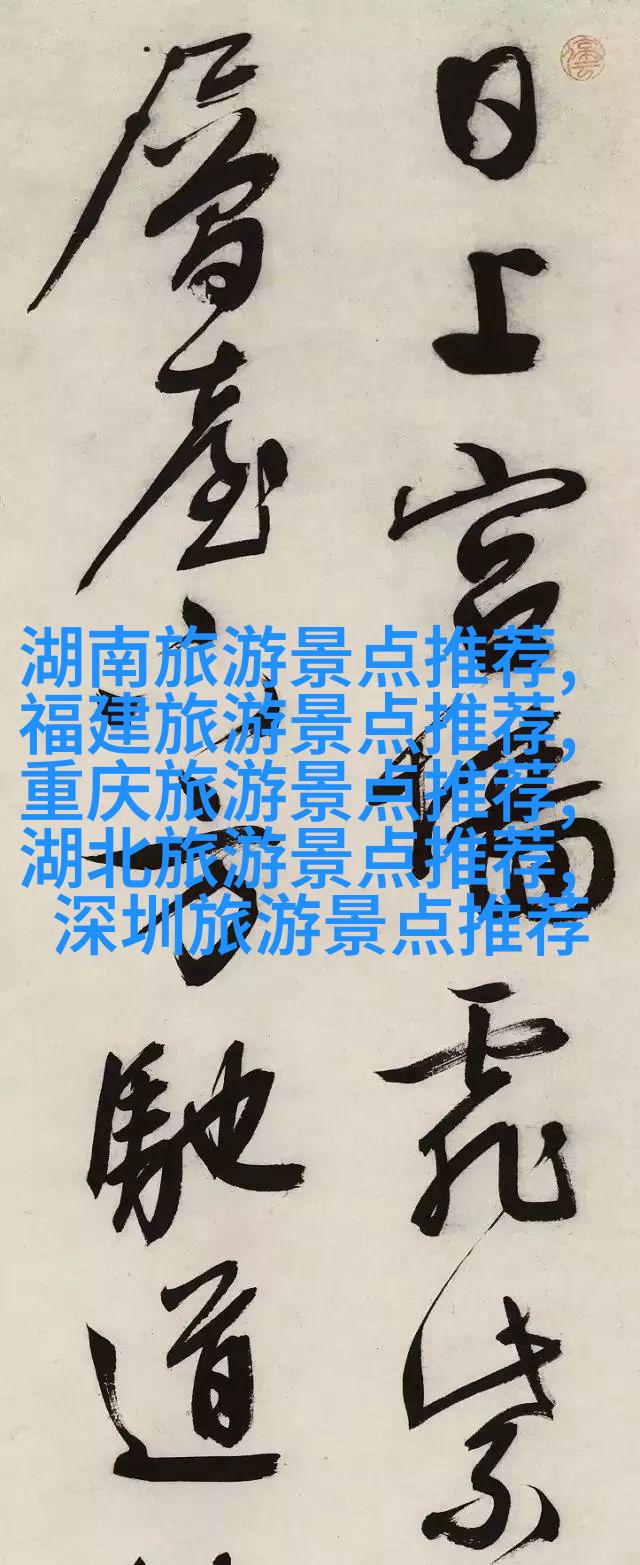 日上宫墙飛紫
層臺

馳道
湖南旅游景点推荐,
福建旅游景点推荐,
重庆旅游景点推荐,
湖北旅游景点推荐,
深圳旅游景点推荐